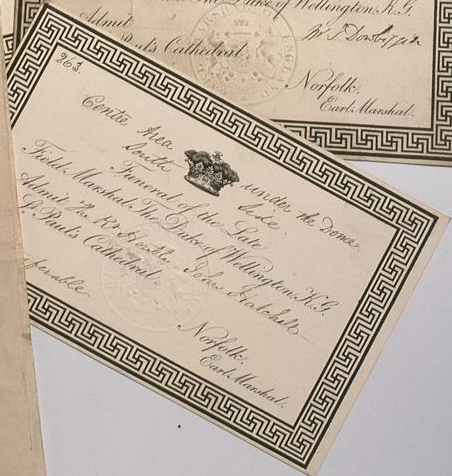 Field Marshal The Duke of Wellington, K.G.
Admit Mr
St. Paul's Cathedral.
Norfolk.
Earl Marshal.
263.
Centre Area under the Dome
South side.
Funeral of the Late
Field Marshal The Duke of Wellington, K.G.
Admit The Rt Honble John Hatchell
St. Paul's Cathedral.
Norfolk.
Earl Marshal.